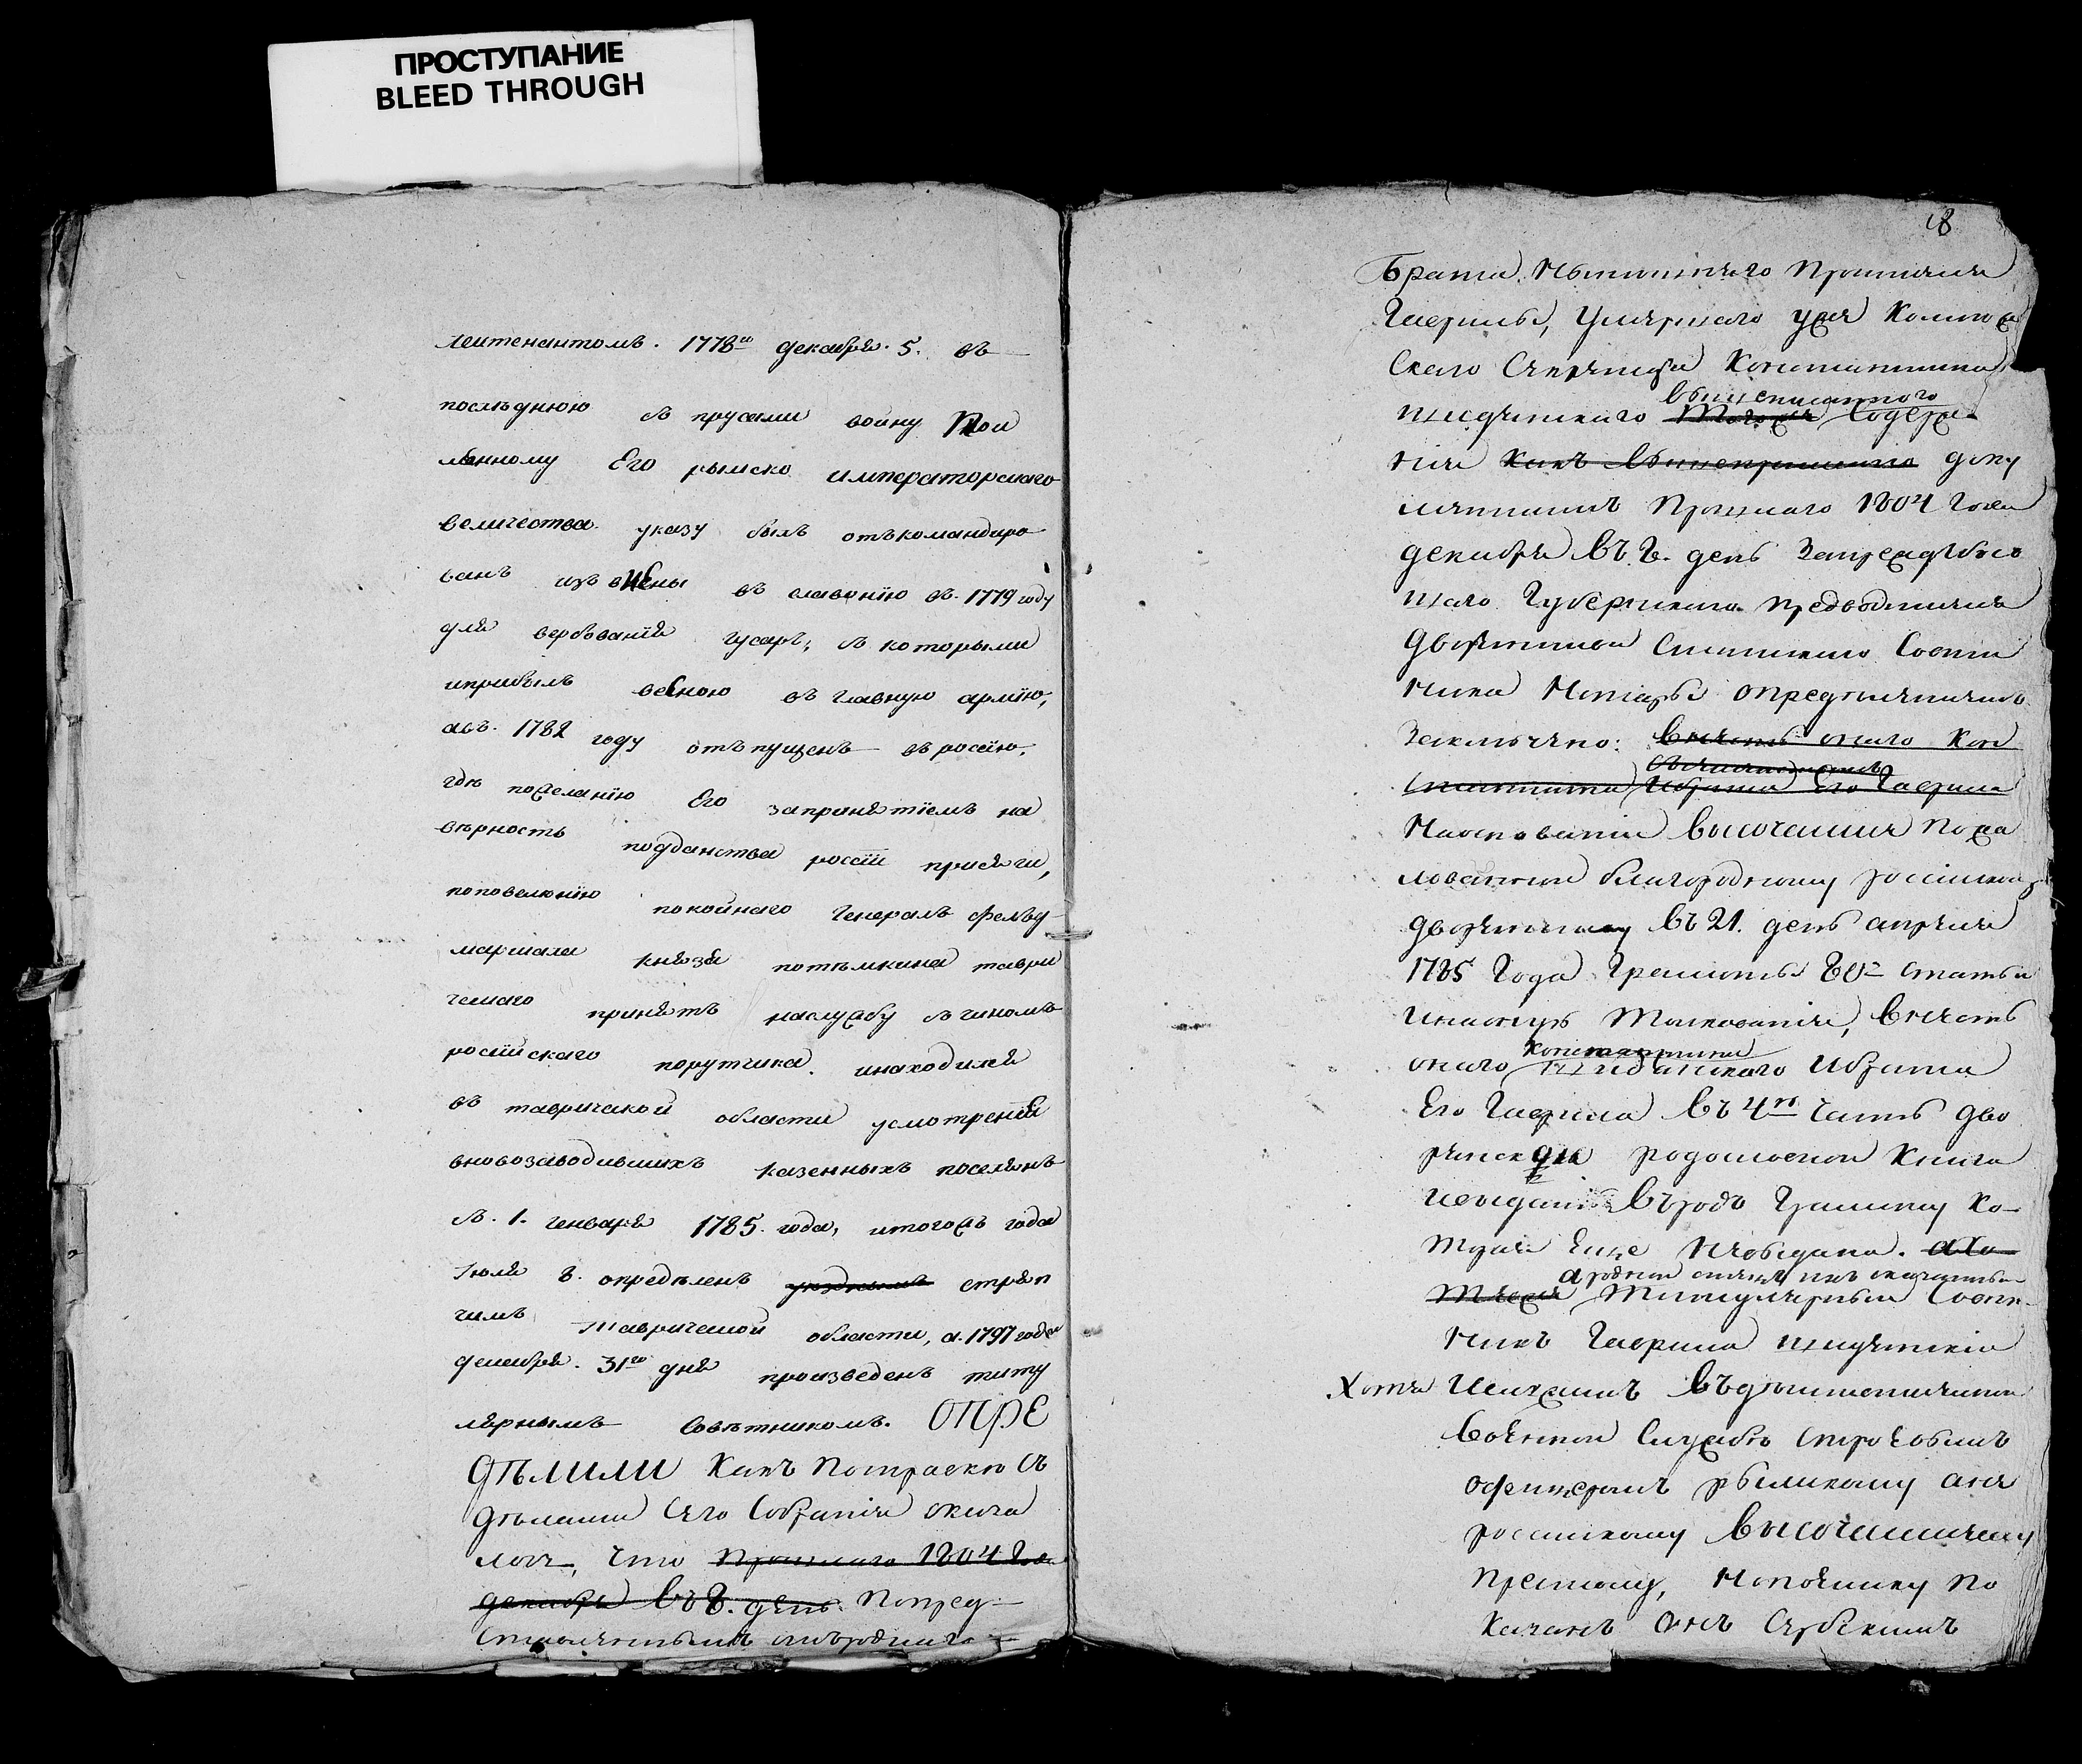 ПРОСТУПАНИЕ
BLEED THROUGH
леитенантомъ. 1778го декабря. 5. въ
последнюю съ прусами войну поИ
мѣнному Его рымско императорскаго
величества указу былъ отъкомандиро
ванъ изъ вѣны въ славонїю въ. 1779 году
для вербованїя гусаръ, съ которыми
иприбылъ весною въ главную армїю,
авъ. 1782 году отъпущенъ въ россїю,
гдѣ пожеланїю Его запринятїемъ на
вѣрность подданства россїи присяги,
поповеленїю покойнаго Генералъ фельд
маршала князя потѣмкина таври
ческаго принятъ наслужбу съ чиномъ
россїйскаго порутчика. инаходился
въ таврической области усмотренїя
вновозаводившихъ казенныхъ поселянъ
съ. 1. генваря 1785. года, итогожъ года
Iюля 8. определенъ уезднымъ стряп
чимъ Таврической области, а. 1797 года
декабря. 31го дня произведенъ титу
лярнымъ совѣтникомъ. ОПРЕ
ДѢЛИЛИ Какъ Посправкѣ Съ
дѣлами Сего Собранія оказа
лось, что Прошлаго 1804 Года
декабря въ 8. день Попред
ставленнымъ отъроднаго
18
Брата Нынешняго Просителя
Гаврилы, Умершаго уже
Секретаря Константина
вышеписанного
Содержа
нія Какъ доку
ментамъ Прошлаго 1804 Года
декабря въ 8. день
Губернскаго предводителя
дворянства Статскаго Совет
ника Нотары определениемъ
Заключено: внесть онаго Кон
стантина Ибрата Его Гаврила
Наоснованіи Высочайше Пожа
лованной благородному россійскому
дворянству въ 21. день апреля
1785 Года Грамоты 80й статьи
, внесть
Константина
онаго Ибрата
Его Гаврила въ 4ю часть дво
рянской родословной Книги
Ивыдать въродъ Грамоту Ко-
торая Еще Невыдана. а хо
а родной
Титулярный Совет
никъ Гаврила
Хотя въдействительной
военной Службѣ
офицеромъ рымскому ане
россійскому высочайшему
престолу, Нопоелику По